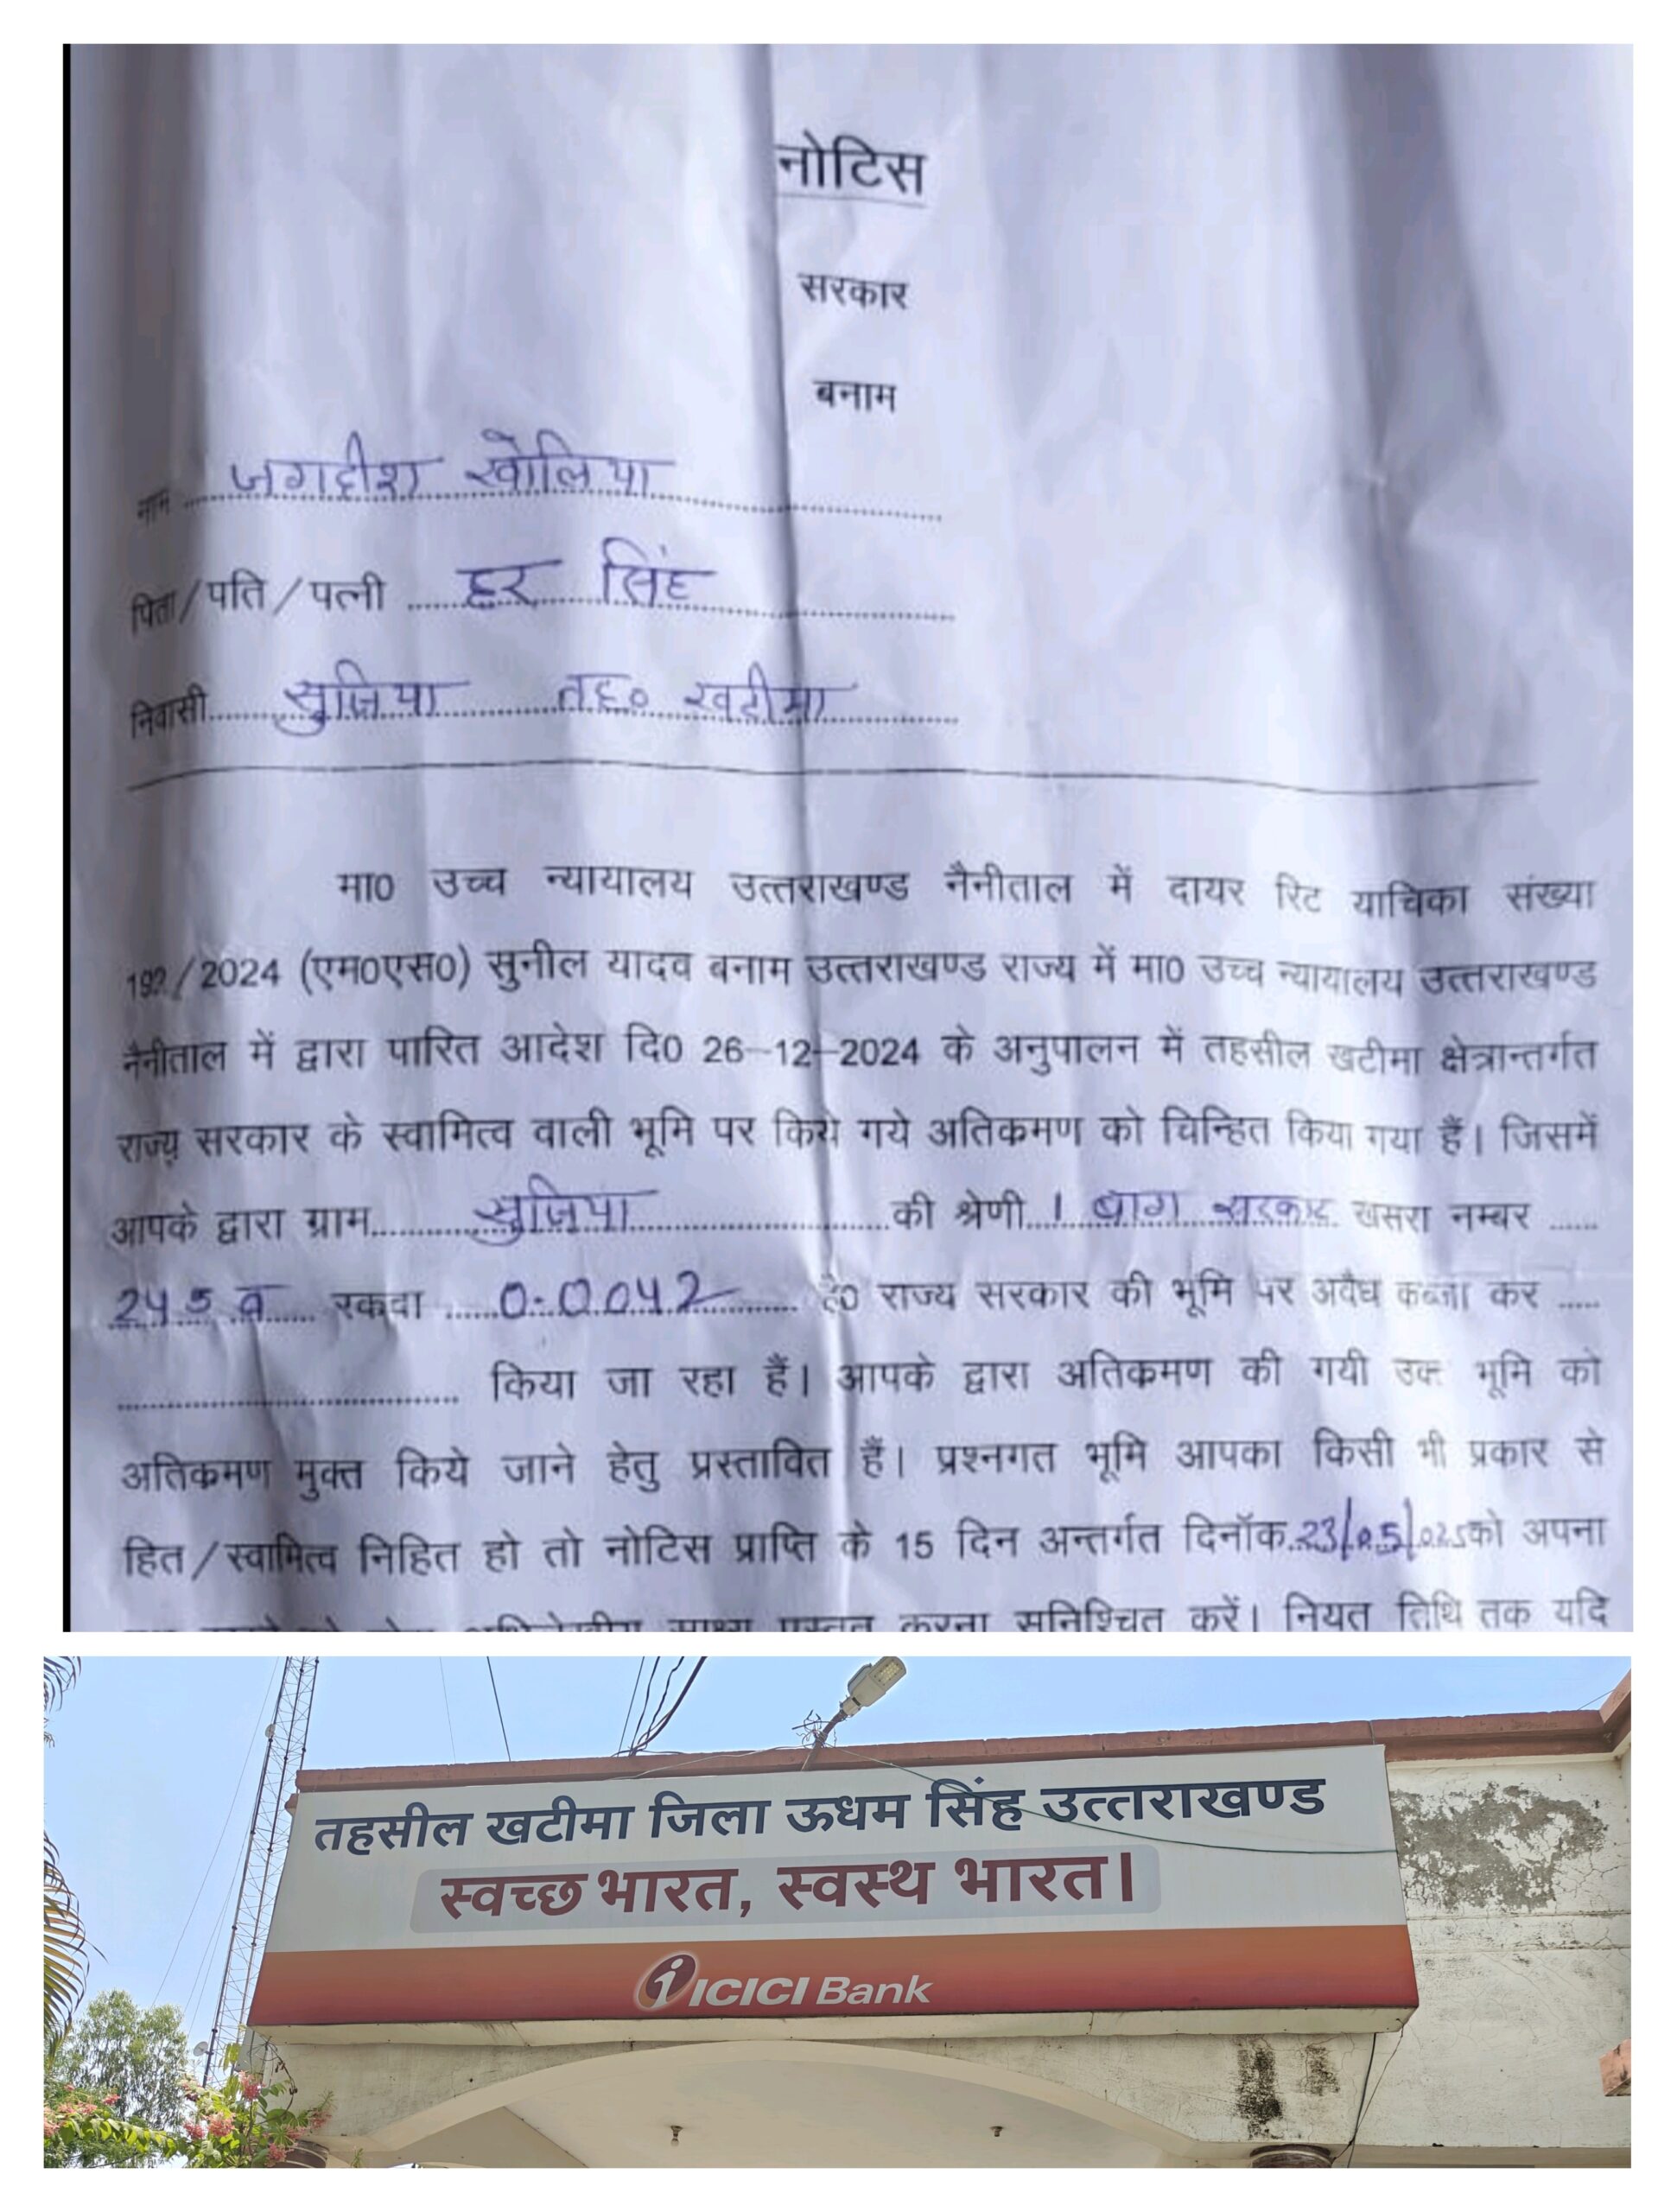 नोटिस
सरकार
बनाम
नाम जगदीश खोलिया
पिता/पति/पत्नी हर सिंह
निवासी सुजिया तह० खटीमा
मा0 उच्च न्यायालय उत्तराखण्ड नैनीताल में दायर रिट याचिका संख्या
/2024 (एम0एस0) सुनील यादव बनाम उत्तराखण्ड राज्य में मा0 उच्च न्यायालय उत्तराखण्ड
नैनीताल में द्वारा पारित आदेश दि0 26-12-2024 के अनुपालन में तहसील खटीमा क्षेत्रान्तर्गत
राज्य सरकार के स्वामित्व वाली भूमि पर किये गये अतिकमण को चिन्हित किया गया हैं। जिसमें
आपके द्वारा ग्राम सुजिया की श्रेणी 1 बाग सरकार खसरा नम्बर ......
245 व रकवा 0.0042 है0 राज्य सरकार की भूमि पर अवैध कब्जा कर .....
किया जा रहा हैं। आपके द्वारा अतिकमण की गयी उक्त भूमि को
अतिकमण मुक्त किये जाने हेतु प्रस्तावित हैं। प्रश्नगत भूमि आपका किसी भी प्रकार से
हित/स्वामित्व निहित हो तो नोटिस प्राप्ति के 15 दिन अन्तर्गत दिनॉक 23/05/025 को अपना
करना सुनिश्चित करें। नियत तिथि तक यदि
तहसील खटीमा जिला ऊधम सिंह उत्तराखण्ड
स्वच्छ भारत, स्वस्थ भारत।
ICICI Bank